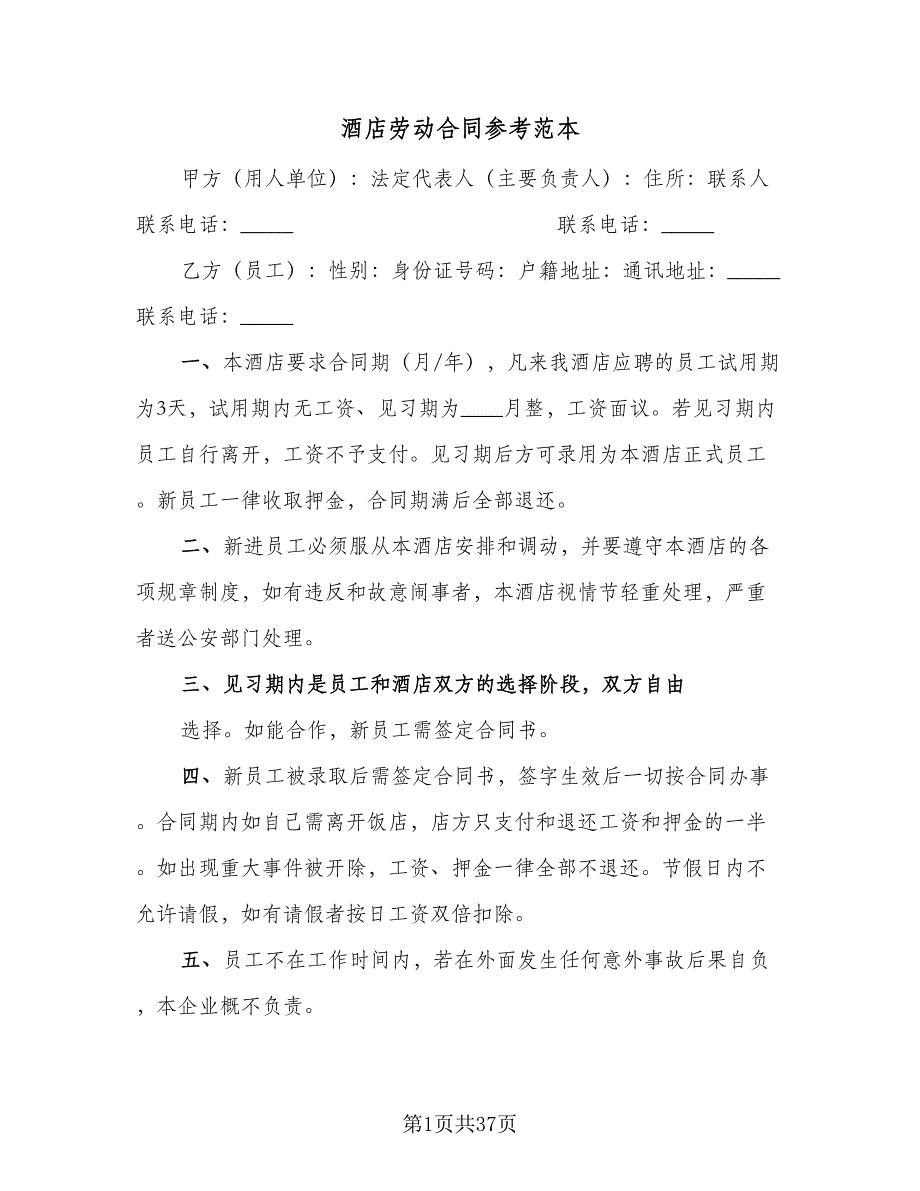 酒店劳动合同参考范本
甲方（用人单位）：法定代表人（主要负责人）：住所：联系人
联系电话：_____ 联系电话：_____
乙方（员工）：性别：身份证号码：户籍地址：通讯地址：_____
联系电话：_____
一、本酒店要求合同期（月/年），凡来我酒店应聘的员工试用期
为3天，试用期内无工资、见习期为____月整，工资面议。若见习期内
员工自行离开，工资不予支付。见习期后方可录用为本酒店正式员工
。新员工一律收取押金，合同期满后全部退还。
二、新进员工必须服从本酒店安排和调动，并要遵守本酒店的各
项规章制度，如有违反和故意闹事者，本酒店视情节轻重处理，严重
者送公安部门处理。
三、见习期内是员工和酒店双方的选择阶段，双方自由
选择。如能合作，新员工需签定合同书。
四、新员工被录取后需签定合同书，签字生效后一切按合同办事
。合同期内如自己需离开饭店，店方只支付和退还工资和押金的一半
。如出现重大事件被开除，工资、押金一律全部不退还。节假日内不
允许请假，如有请假者按日工资双倍扣除。
五、员工不在工作时间内，若在外面发生任何意外事故后果自负
，本企业概不负责。
第1页共37页